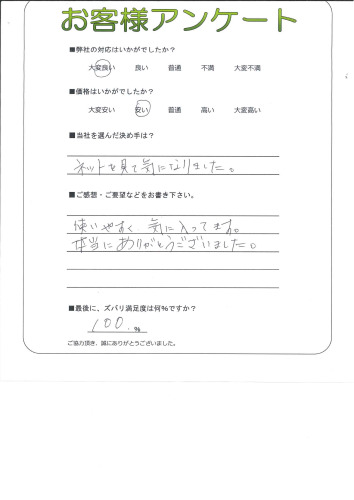 お客様アンケート
■弊社の対応はいかがでしたか？
大変良い 良い 普通 不満 大変不満
■価格はいかがでしたか？
大変安い 安い 普通 高い 大変高い
■当社を選んだ決め手は？
ネットを見て気になりました。
■ご感想・ご要望などをお書き下さい。
使いやすく 気に入ってます。
本当にありがとうございました。
■最後に、ズバリ満足度は何％ですか？
100.％
ご協力頂き、誠にありがとうございました。